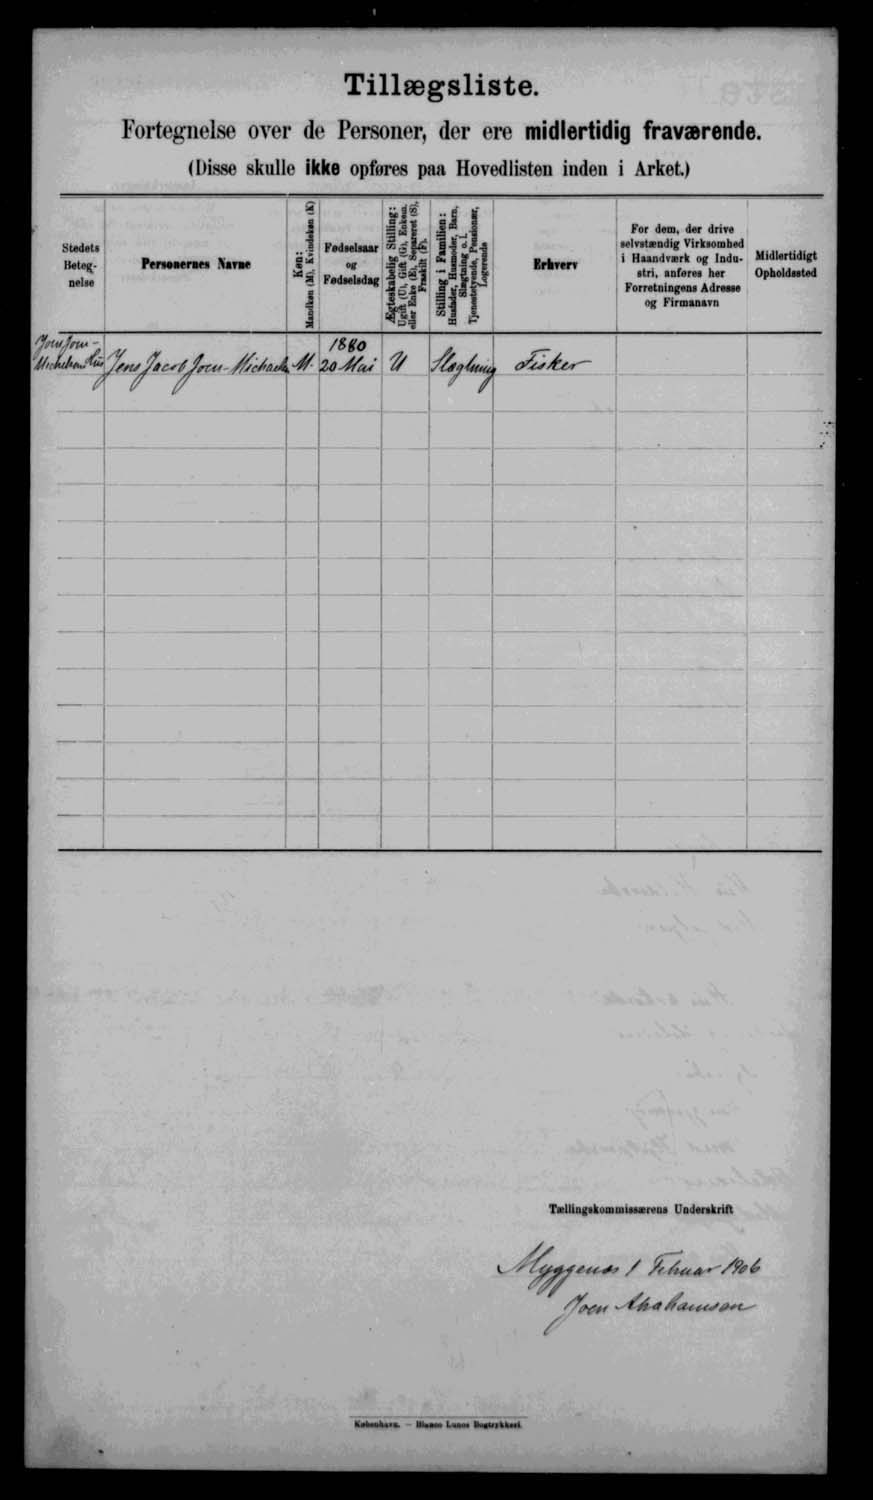 Tillægsliste.
Fortegnelse over de Personer, der ere midlertidig fraværende.
(Disse skulle ikke opføres paa Hovedlisten inden i Arket.)
Stedets
Beteg-
nelse
Personernes Navne
Køn:
Mandkøn (M), Kvindekøn (K)
Fødselsaar
og
Fødselsdag
Ægteskabelig Stilling:
Ugift (U), Gift (G), Enkem.
eller Enke (E), Separeret (S),
Fraskilt (F).
Stilling i Familien:
Husfader, Husmoder, Barn,
Slægtning o. l.
Tjenestetyende, Pensionær,
Logerende
Erhverv
For dem, der drive
selvstændig Virksomhed
i Haandværk og Indu-
stri, anføres her
Forretningens Adresse
og Firmanavn
Midlertidigt
Opholdssted
Joen Joen-
Michelsens Hus
Jens Jacob Joen-Michaels M. 1880 20 Mai U Slægtning Fisker
Tællingskommissærens Underskrift
Myggenæs 1 Februar 1906
Joen Abrahamson
København. — Bianco Lunos Bogtrykkeri.